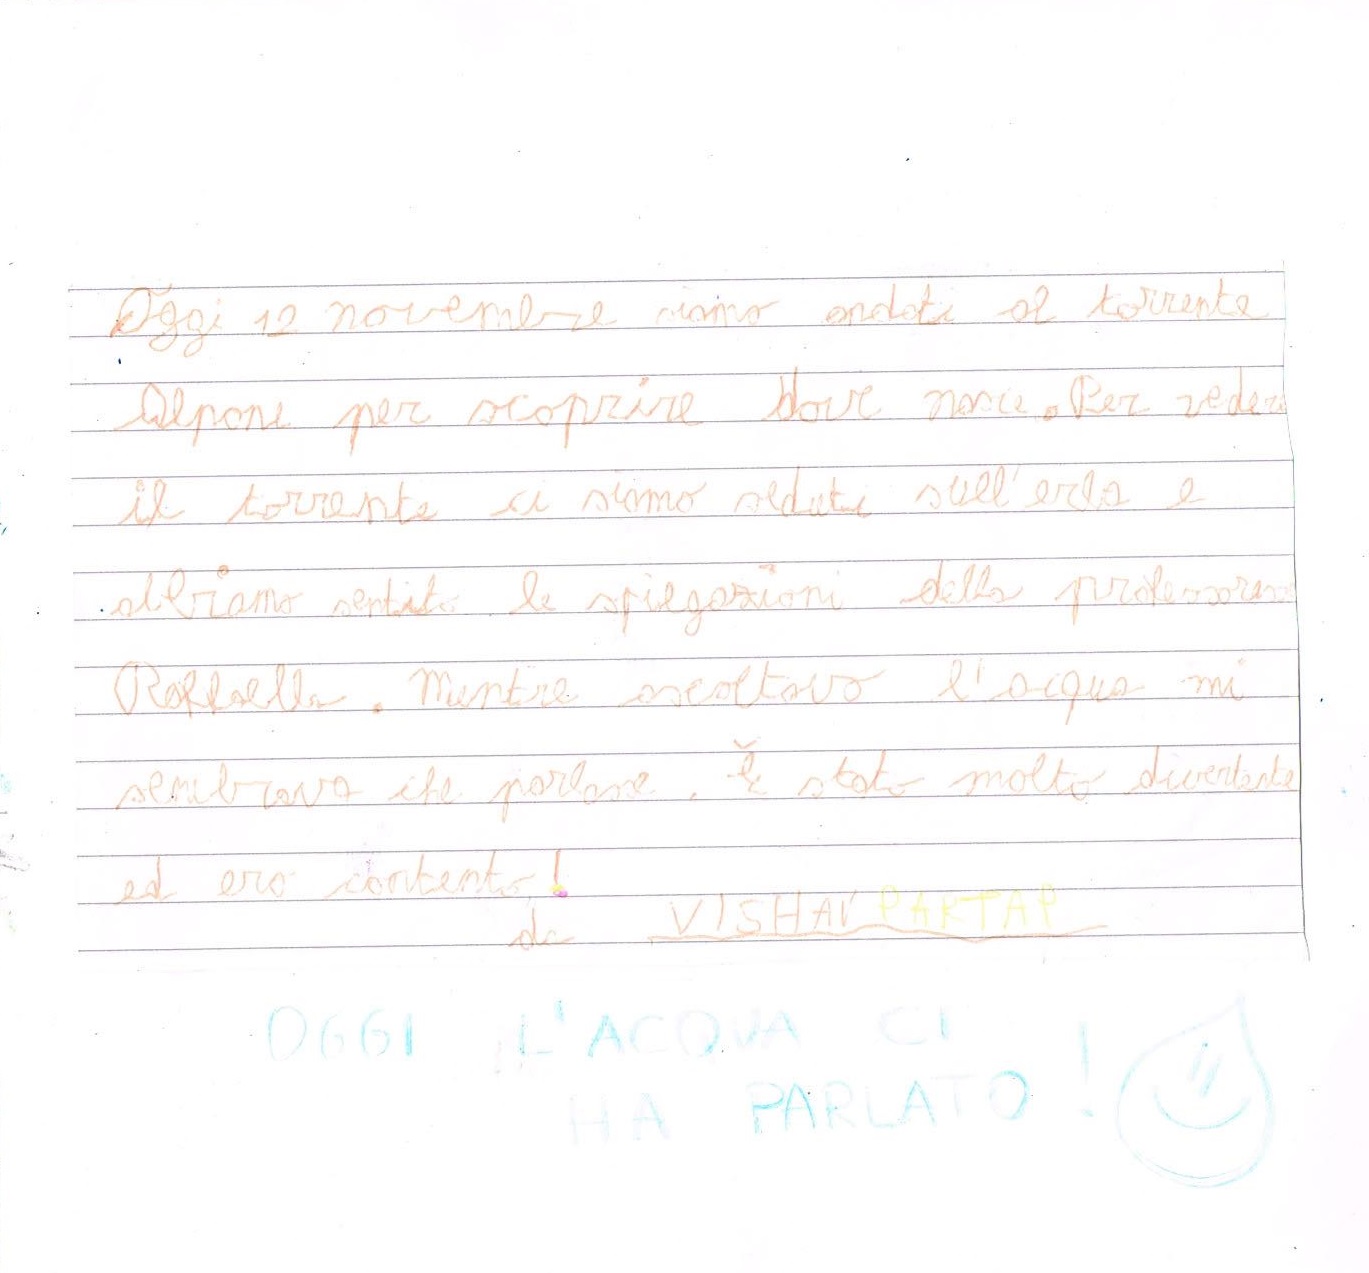 Oggi 12 novembre siamo andati al torrente
Alpone per scoprire dove nasce. Per vedere
il torrente ci siamo seduti sull'erba e
abbiamo sentito le spiegazioni della professoressa
Raffaella. Mentre ascoltavo l'acqua mi
sembrava che parlasse. È stato molto divertente
ed ero contento!
da VISHAV PARTAP
OGGI L'ACQUA CI
HA PARLATO!